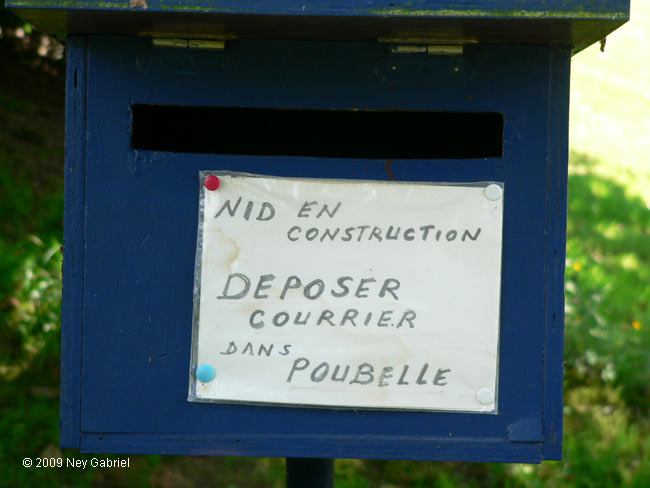 NID EN
CONSTRUCTION
DEPOSER
COURRIER
DANS POUBELLE
© 2009 Ney Gabriel